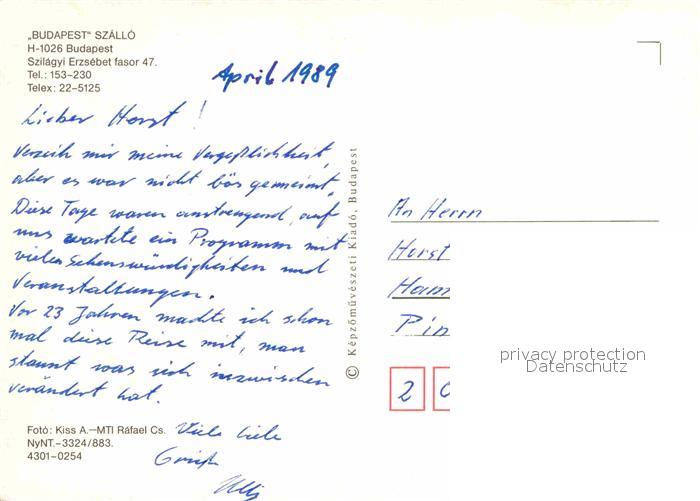 „BUDAPEST" SZÁLLÓ
H-1026 Budapest
Szilágyi Erzsébet fasor 47.
Tel.: 153-230
Telex: 22-5125
April 1989
Lieber Horst!
Verzeih mir meine Vergeßlichkeit,
aber es war nicht bös gemeint.
Diese Tage waren anstrengend, auf
uns wartete ein Programm mit
vielen Sehenswürdigkeiten und
Veranstaltungen.
Vor 23 Jahren machte ich schon
mal diese Reise mit, man
staunt was sich inzwischen
verändert hat.
Viele liebe
Grüße
Fotó: Kiss A.—MTI Ráfael Cs.
NyNT.-3324/883.
4301-0254
© Képzőművészeti Kiadó, Budapest
An Herrn
Horst
Ham
Pin
2
privacy protection
Datenschutz